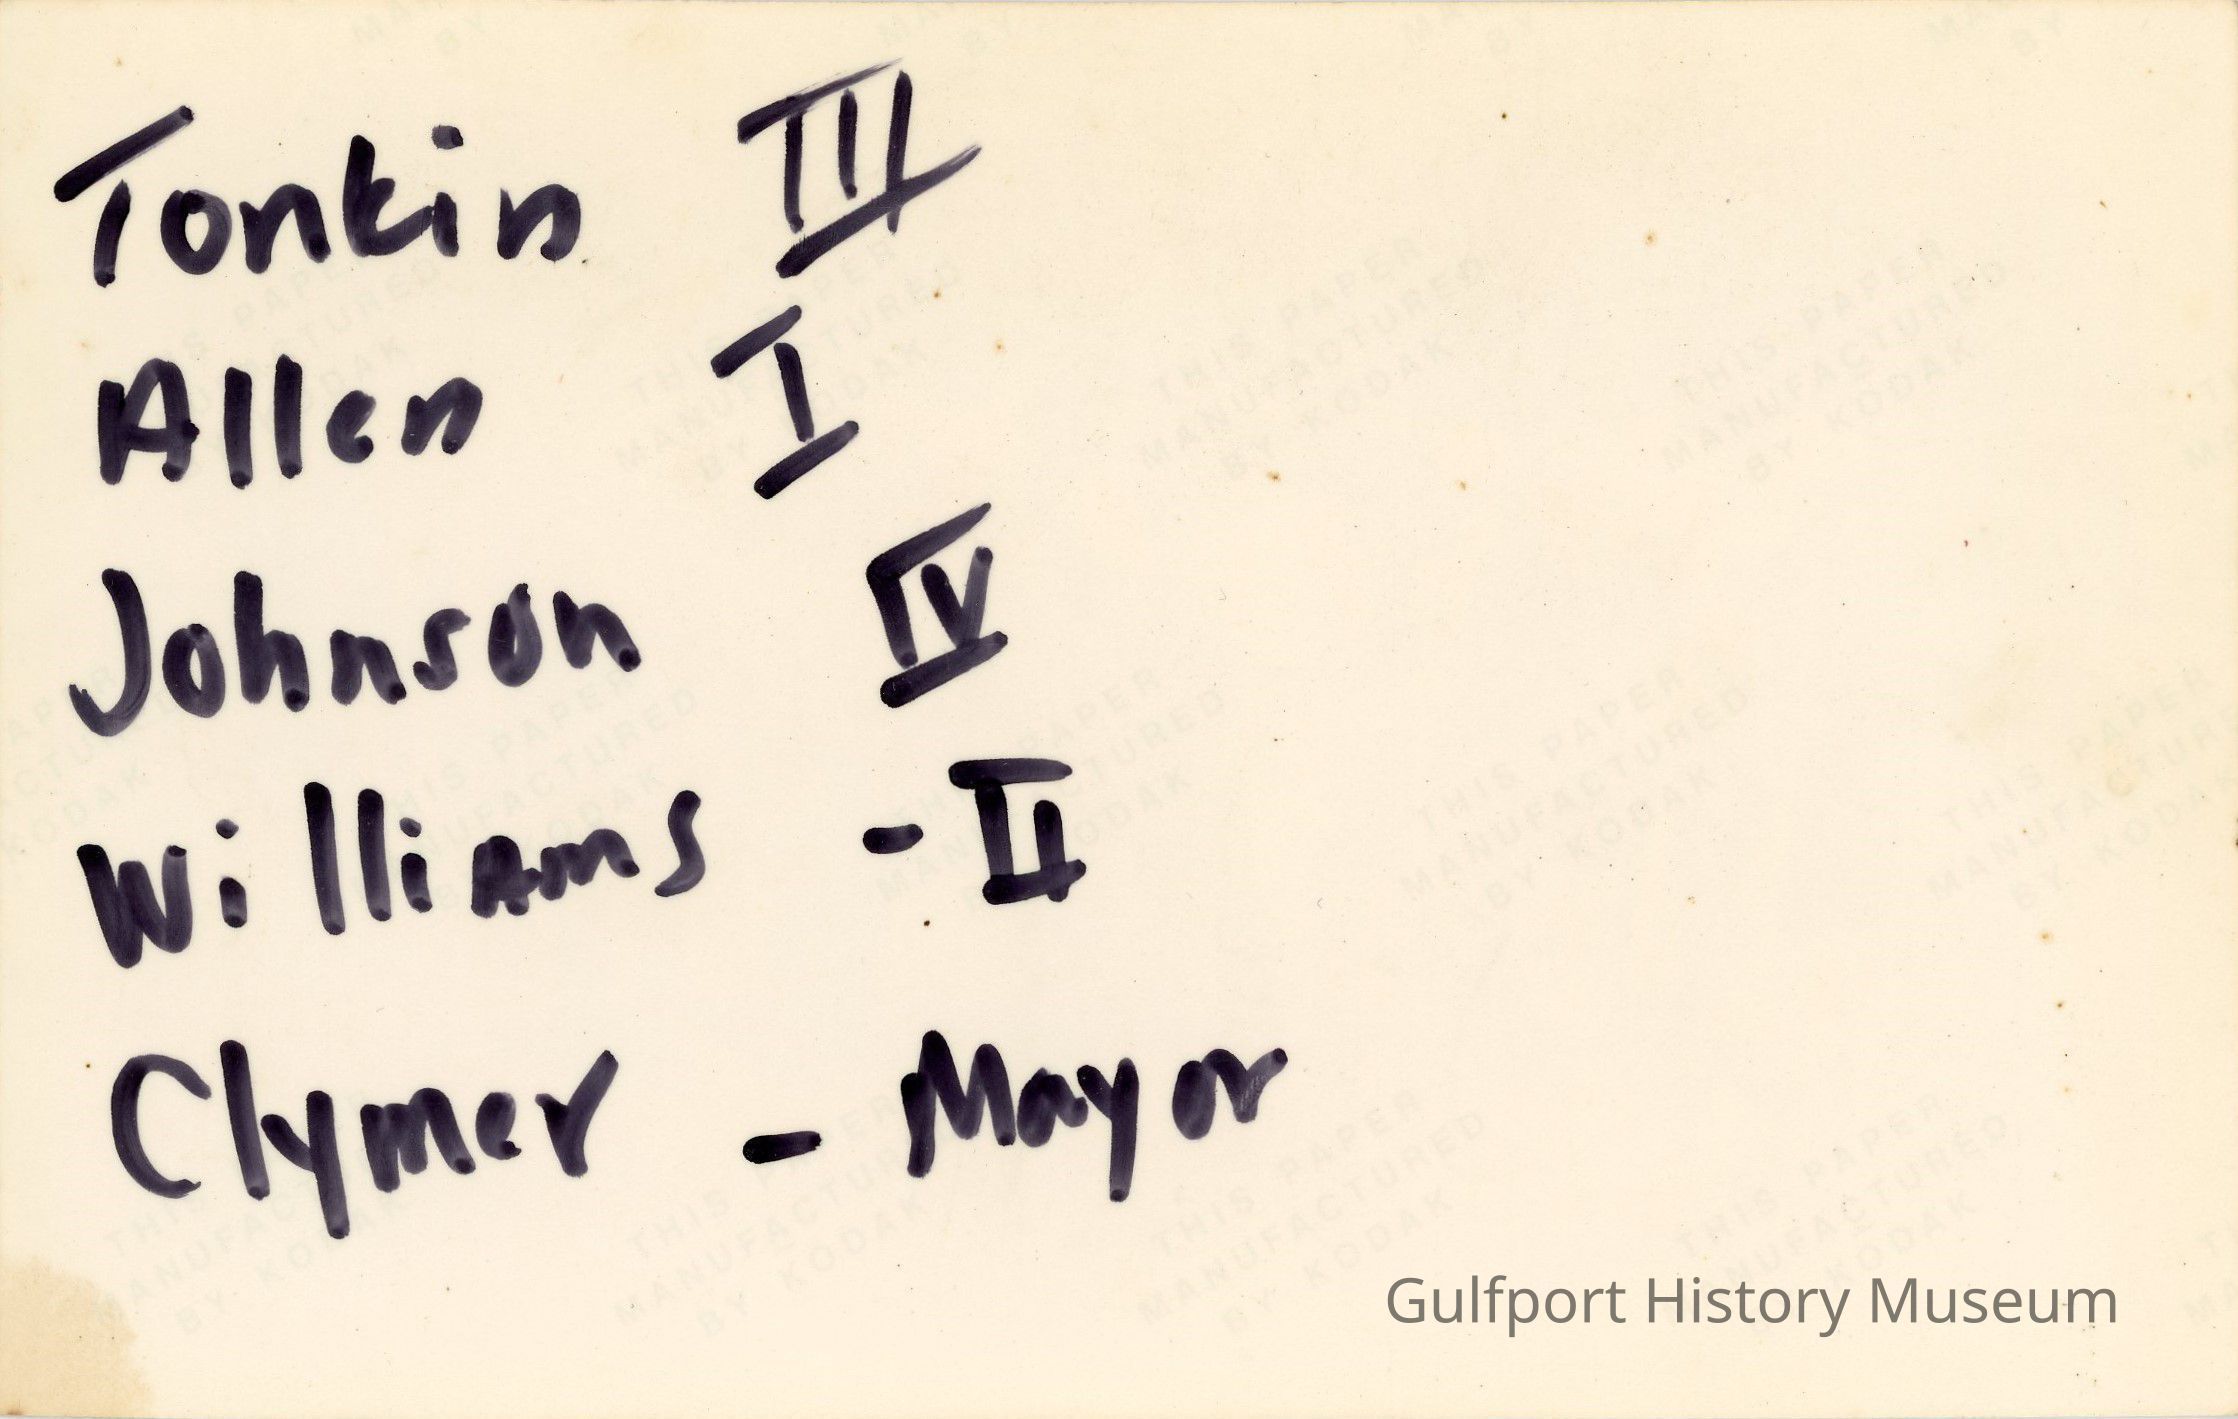 Tonkin III
Allen I
Johnson IV
Williams - II
Clymer - Mayor
Gulfport History Museum
THIS PAPER
MANUFACTURED
BY KODAK